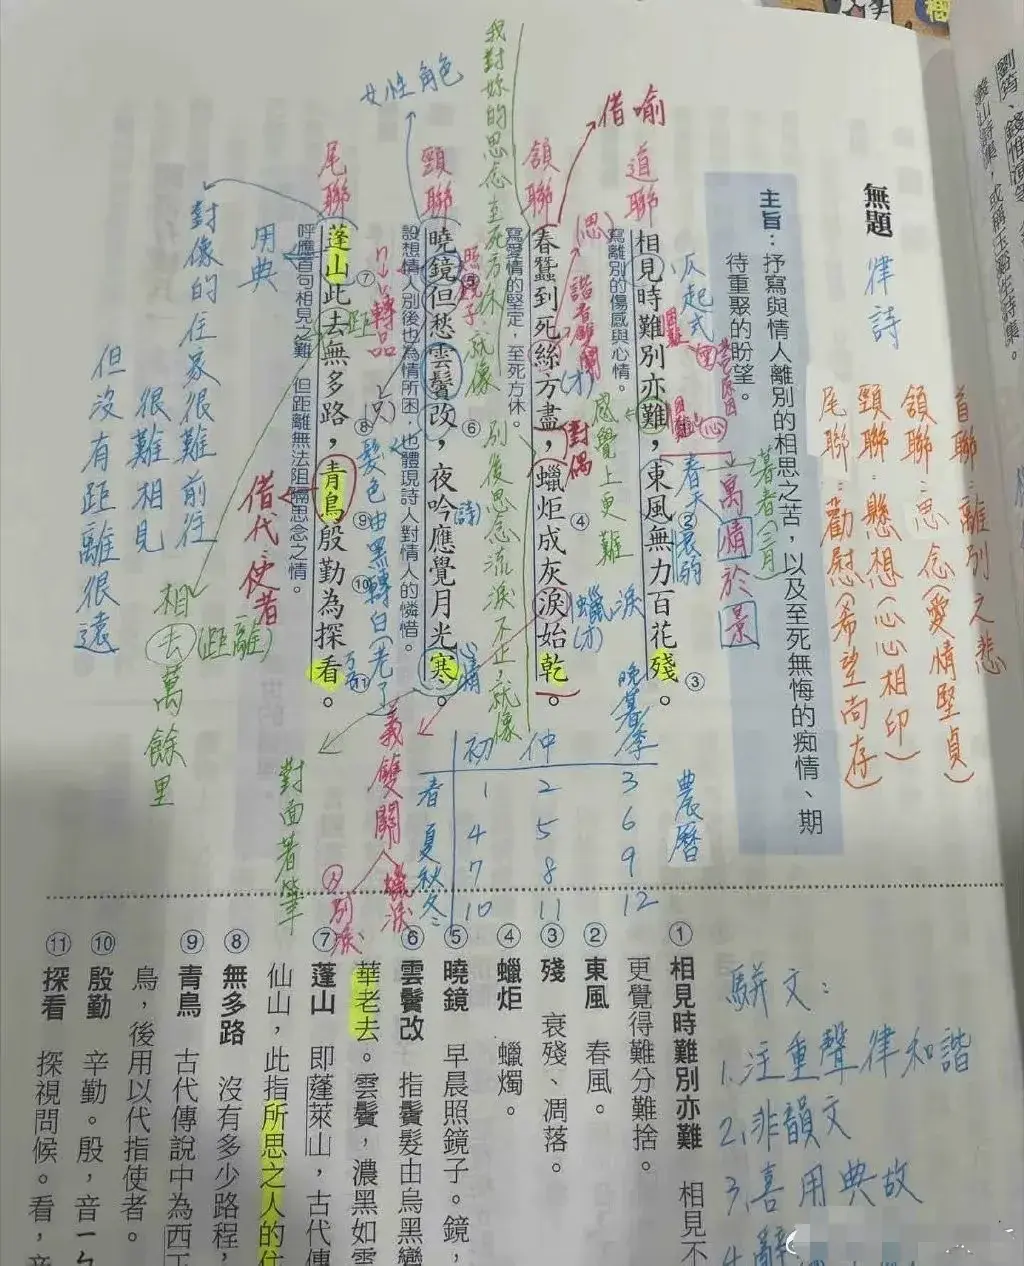 無題
律詩
主旨：抒寫與情人離別的相思之苦，以及至死無悔的痴情、期
待重聚的盼望。
首聯：離別之悲
頷聯：思念（愛情堅貞）
頸聯：懸想（心心相印）
尾聯：勸慰（希望尚存）
相見時難別亦難，東風無力百花殘③。
寫離別的傷感與心情。
仄起式
困難
困難
春天
衰弱
寓情於景
暮春（三月）
感覺上更難
借喻
頷聯
春蠶到死絲方盡，蠟炬④成灰淚始乾。
寫愛情的堅定，至死方休。
（思）
（才）
對偶
蠟淚
（才）
我對妳的思念至死方休，就像
別後思念流淚不止，就像
女性角色
頸聯
曉鏡⑤但愁雲鬢改⑥，夜吟應覺月光寒。
設想情人別後也為情所困，也體現詩人對情人的憐惜。
照鏡子
轉品
只
（詩）
心情
髮色由黑轉白（老了）
尾聯
蓬山⑦此去無多路⑧，青鳥⑨殷勤⑩為探看⑪。
呼應首句相見之難 但距離無法阻隔思念之情。
用典
借代：使者
對像的住家很難前往
很難相見
但沒有距離很遠
相去（距離）萬餘里
對面著筆
雙關
蠟淚
別淚
初 仲 季
暮
晚
春 1 2 3
夏 4 5 6
秋 7 8 9
冬 10 11 12
農曆
①相見時難別亦難 相見不
更覺得難分難捨。
②東風 春風。
③殘 衰殘、凋落。
④蠟炬 蠟燭。
⑤曉鏡 早晨照鏡子。鏡，
⑥雲鬢改 指鬢髮由烏黑變
華老去。雲鬢，濃黑如雲
⑦蓬山 即蓬萊山，古代傳
仙山，此指所思之人的住
⑧無多路 沒有多少路程，
⑨青鳥 古代傳說中為西王
鳥，後用以代指使者。
⑩殷勤 辛勤。殷，音ㄧㄣ
⑪探看 探視問候。看，音
駢文：
1.注重聲律和諧
2.非韻文
3.喜用典故
4.辭